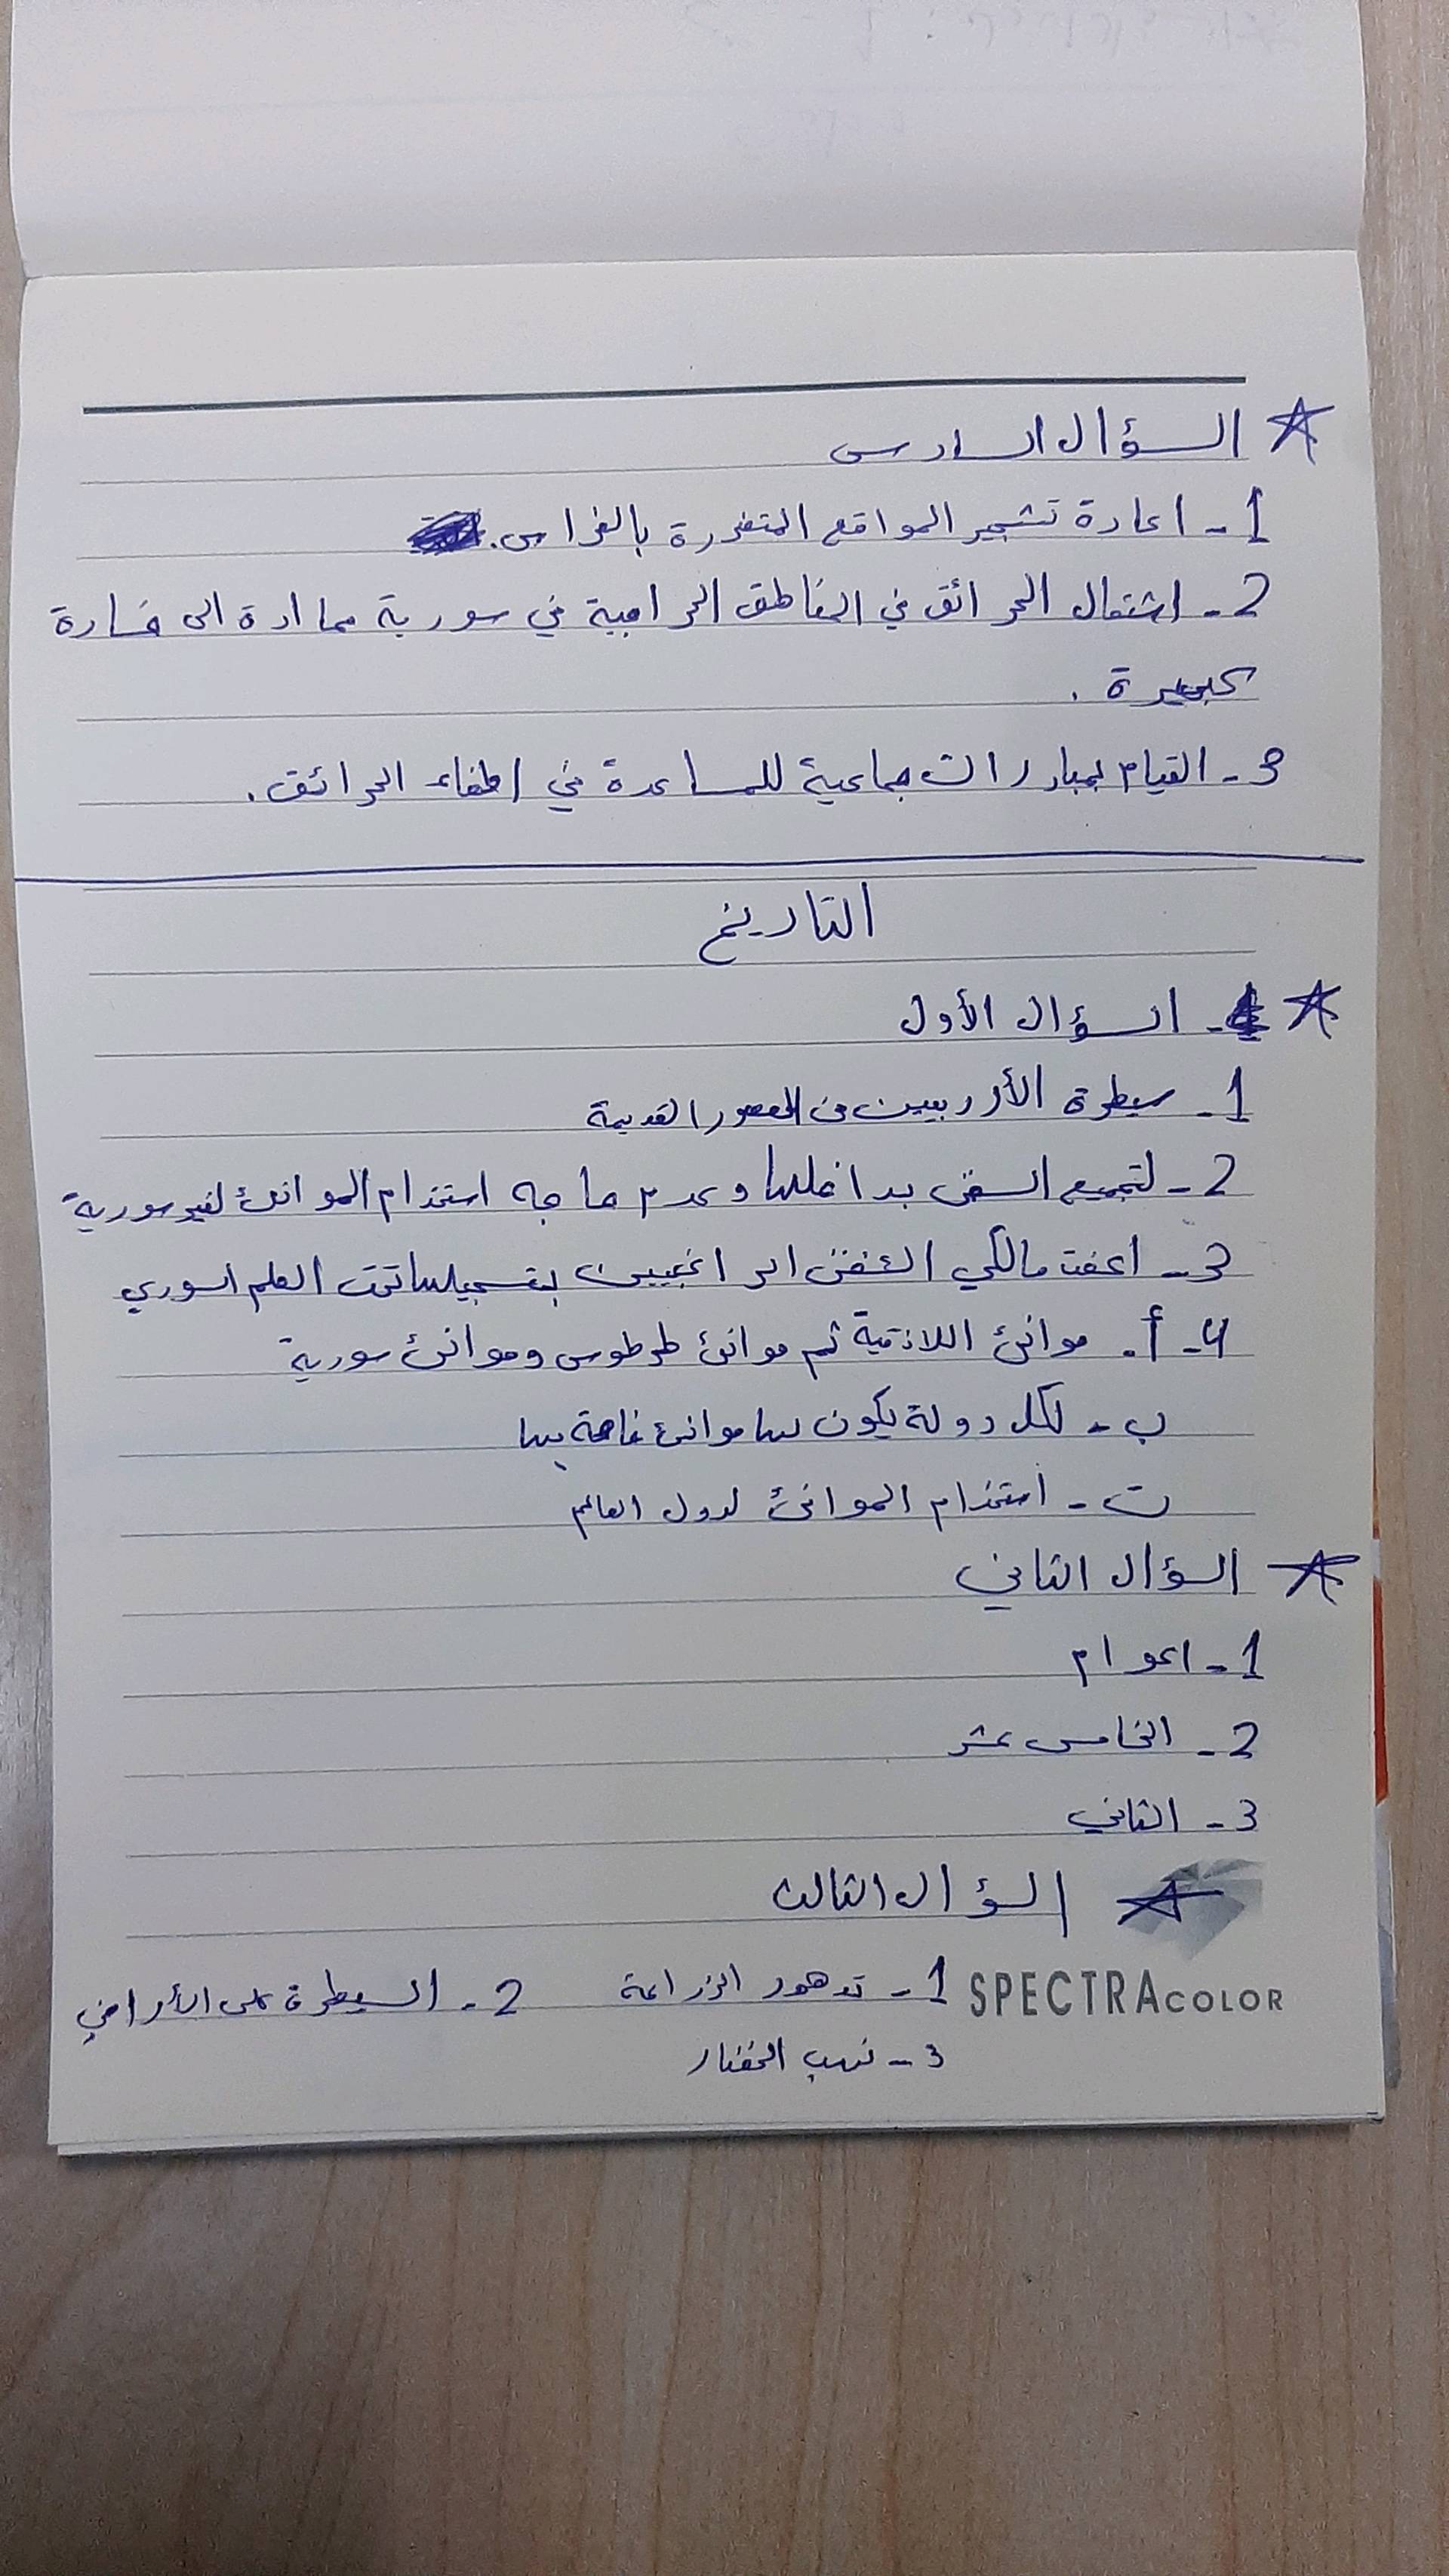 السؤال السادس
1- اعادة تشجير المواقع المتضررة بالغراس.
2- اشتعال الحرائق في المناطق الحراجية في سورية مما ادة الى خسارة
كبيرة .
3- القيام بمبادرات جماعية للمساعدة في اطفاء الحرائق.
التاريخ
السؤال الأول
1- سيطرة الأوربيين من العصور القديمة
2- لتجميع السفن بداخلها وعدم حاجه استخدام الموانئ لغير سورية
3- اعفت مالكي السفن الراغبين بتسجيلها تحت العلم السوري
4- أ. موانئ اللاذقية ثم موانئ طرطوس وموانئ سورية
ب - لكل دولة يكون لها موانئ خاصة بها
ت - استخدام الموانئ لدول العالم
السؤال الثاني
1- اعوام
2- الخامس عشر
3- الثاني
السؤال الثالث
1- تدهور الزراعة 2- السيطرة على الأراضي
SPECTRACOLOR
3- نهب